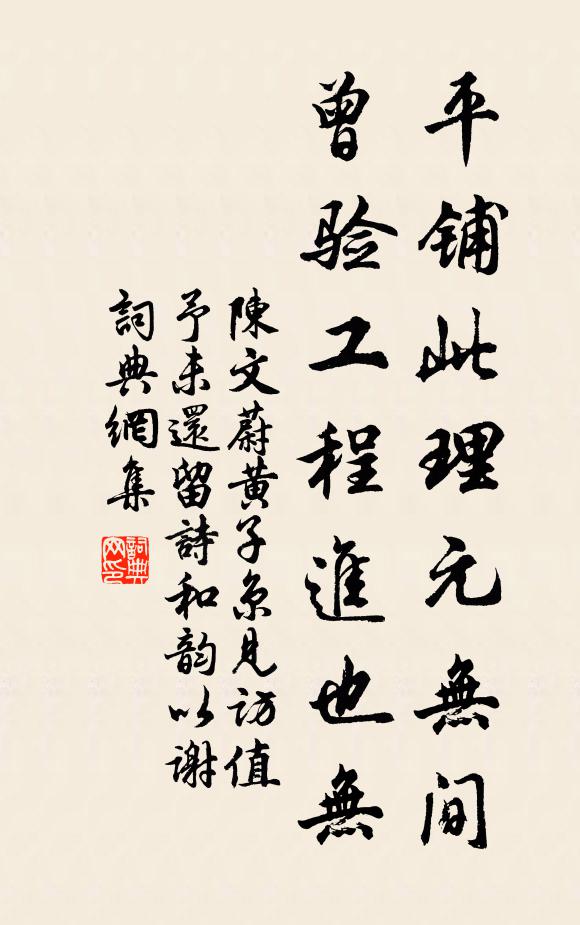 平铺此理元無间
曾验工程進也無
陳文蔚黄子京見访值
予未還留詩和韵以谢
詞典網集
詞典网印